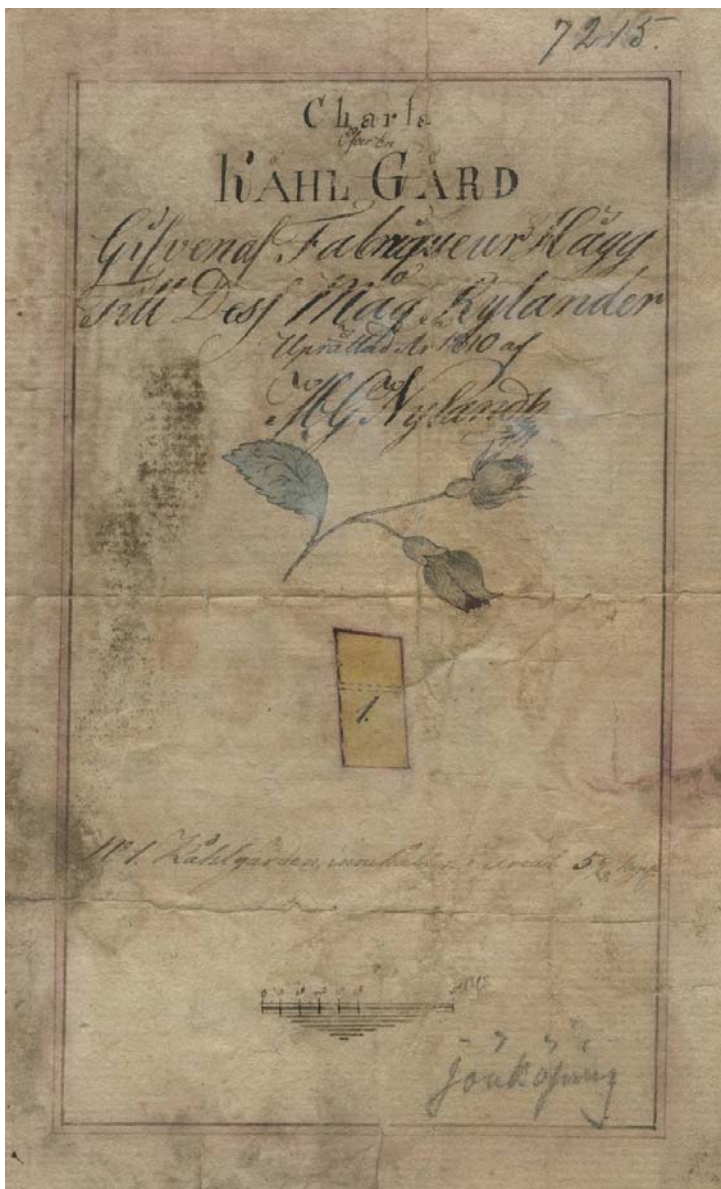 7215.
Charta
Öfver En
KÅHL GÅRD
Gifven af Fabriqueur Hägg
Till Dess Måg Rylander
Upprättad År 1810 af
Nylandh
1.
N:o 1. Kåhlgården, innehåller i areal 5
Jönköping